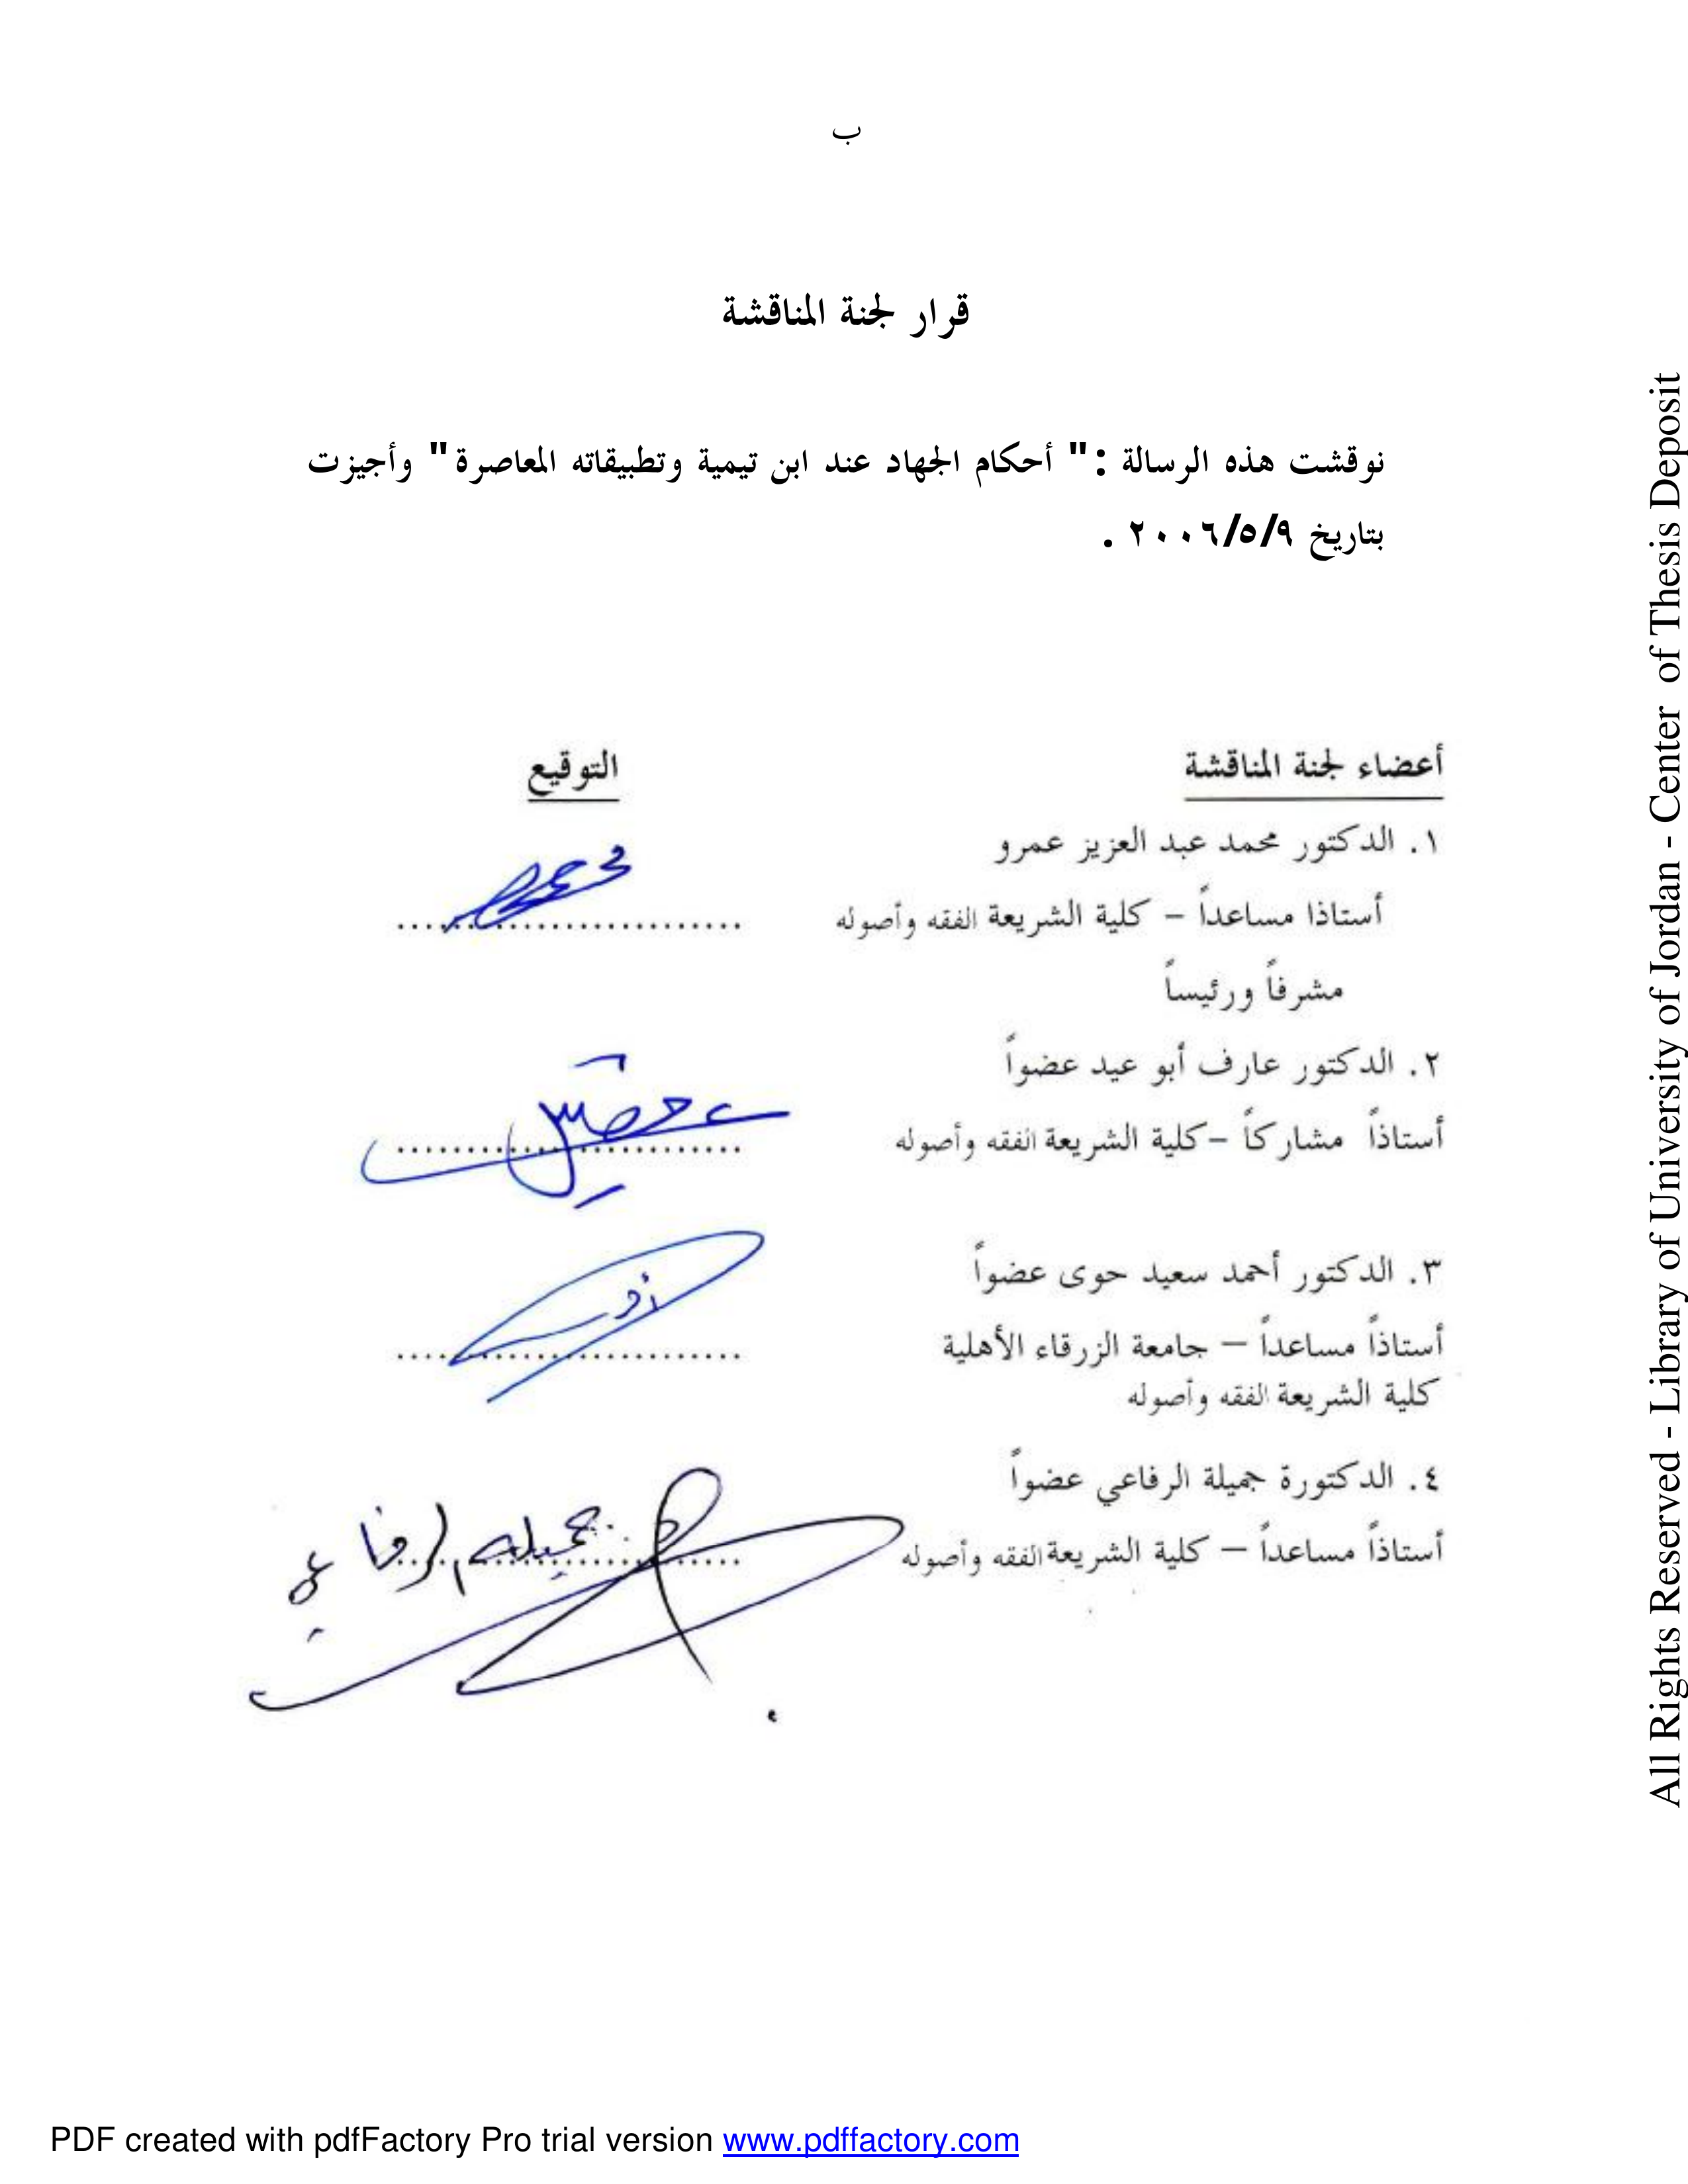 ب
قرار لجنة المناقشة
نوقشت هذه الرسالة :" أحكام الجهاد عند ابن تيمية وتطبيقاته المعاصرة" وأجيزت
بتاريخ ٢٠٠٦/٥/٩ .
أعضاء لجنة المناقشة
التوقيع
١. الدكتور محمد عبد العزيز عمرو
أستاذا مساعداً – كلية الشريعة الفقه وأصوله
........................
مشرفاً ورئيساً
٢. الدكتور عارف أبو عيد عضواً
أستاذاً مشاركاً –كلية الشريعة الفقه وأصوله
........................
٣. الدكتور أحمد سعيد حوى عضواً
أستاذاً مساعداً – جامعة الزرقاء الأهلية
........................
كلية الشريعة الفقه وأصوله
٤. الدكتورة جميلة الرفاعي عضواً
جميله الرفاعي
أستاذاً مساعداً – كلية الشريعة الفقه وأصوله
........................
All Rights Reserved - Library of University of Jordan - Center of Thesis Deposit
PDF created with pdfFactory Pro trial version www.pdffactory.com